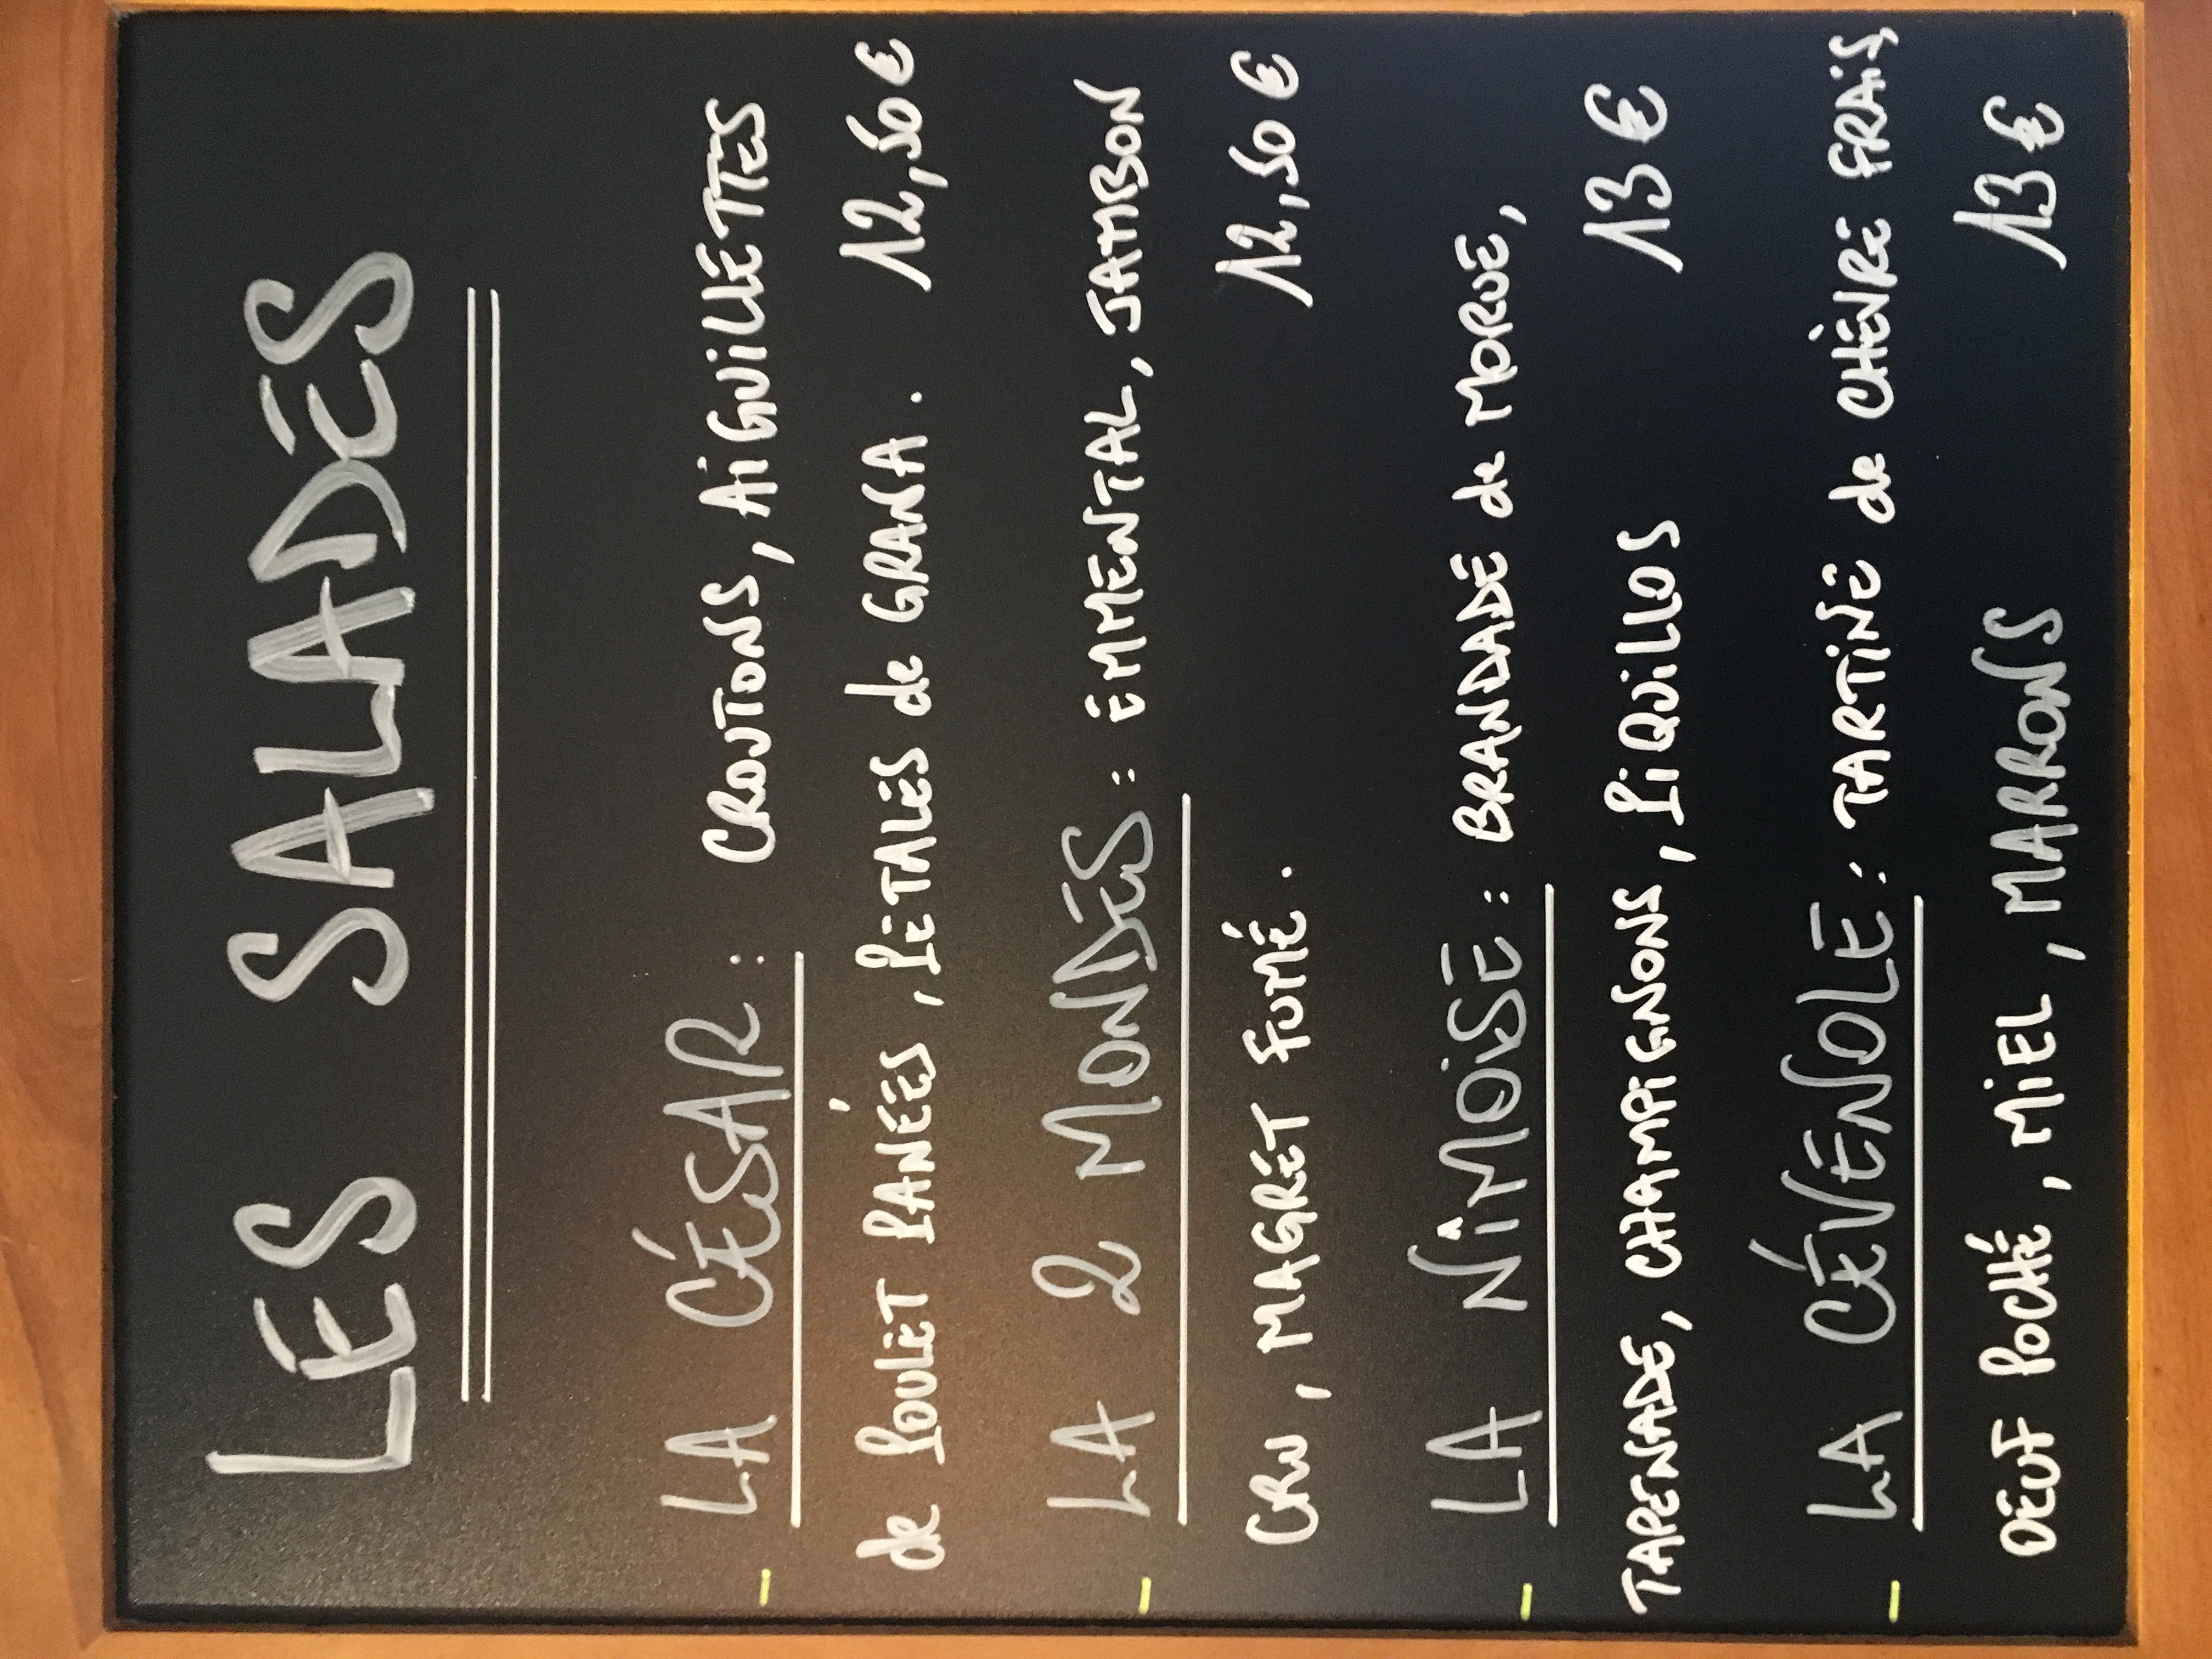 LES SALADES
- LA CÉSAR : CROUTONS, AIGUILLETTES
de POULET PANÉES, PETALES de GRANA. 12,50 €
- LA 2 MONDES : EMMENTAL, JAMBON
CRU, MAGRET FUMÉ. 12,50 €
- LA NîMOISE : BRANDADE de MORUE,
TAPENADE, CHAMPIGNONS, PIQUILLOS 13 €
- LA CÉVENOLE : TARTINE de CHÈVRE FRAIS,
OEUF POCHÉ, MIEL, MARRONS 13 €